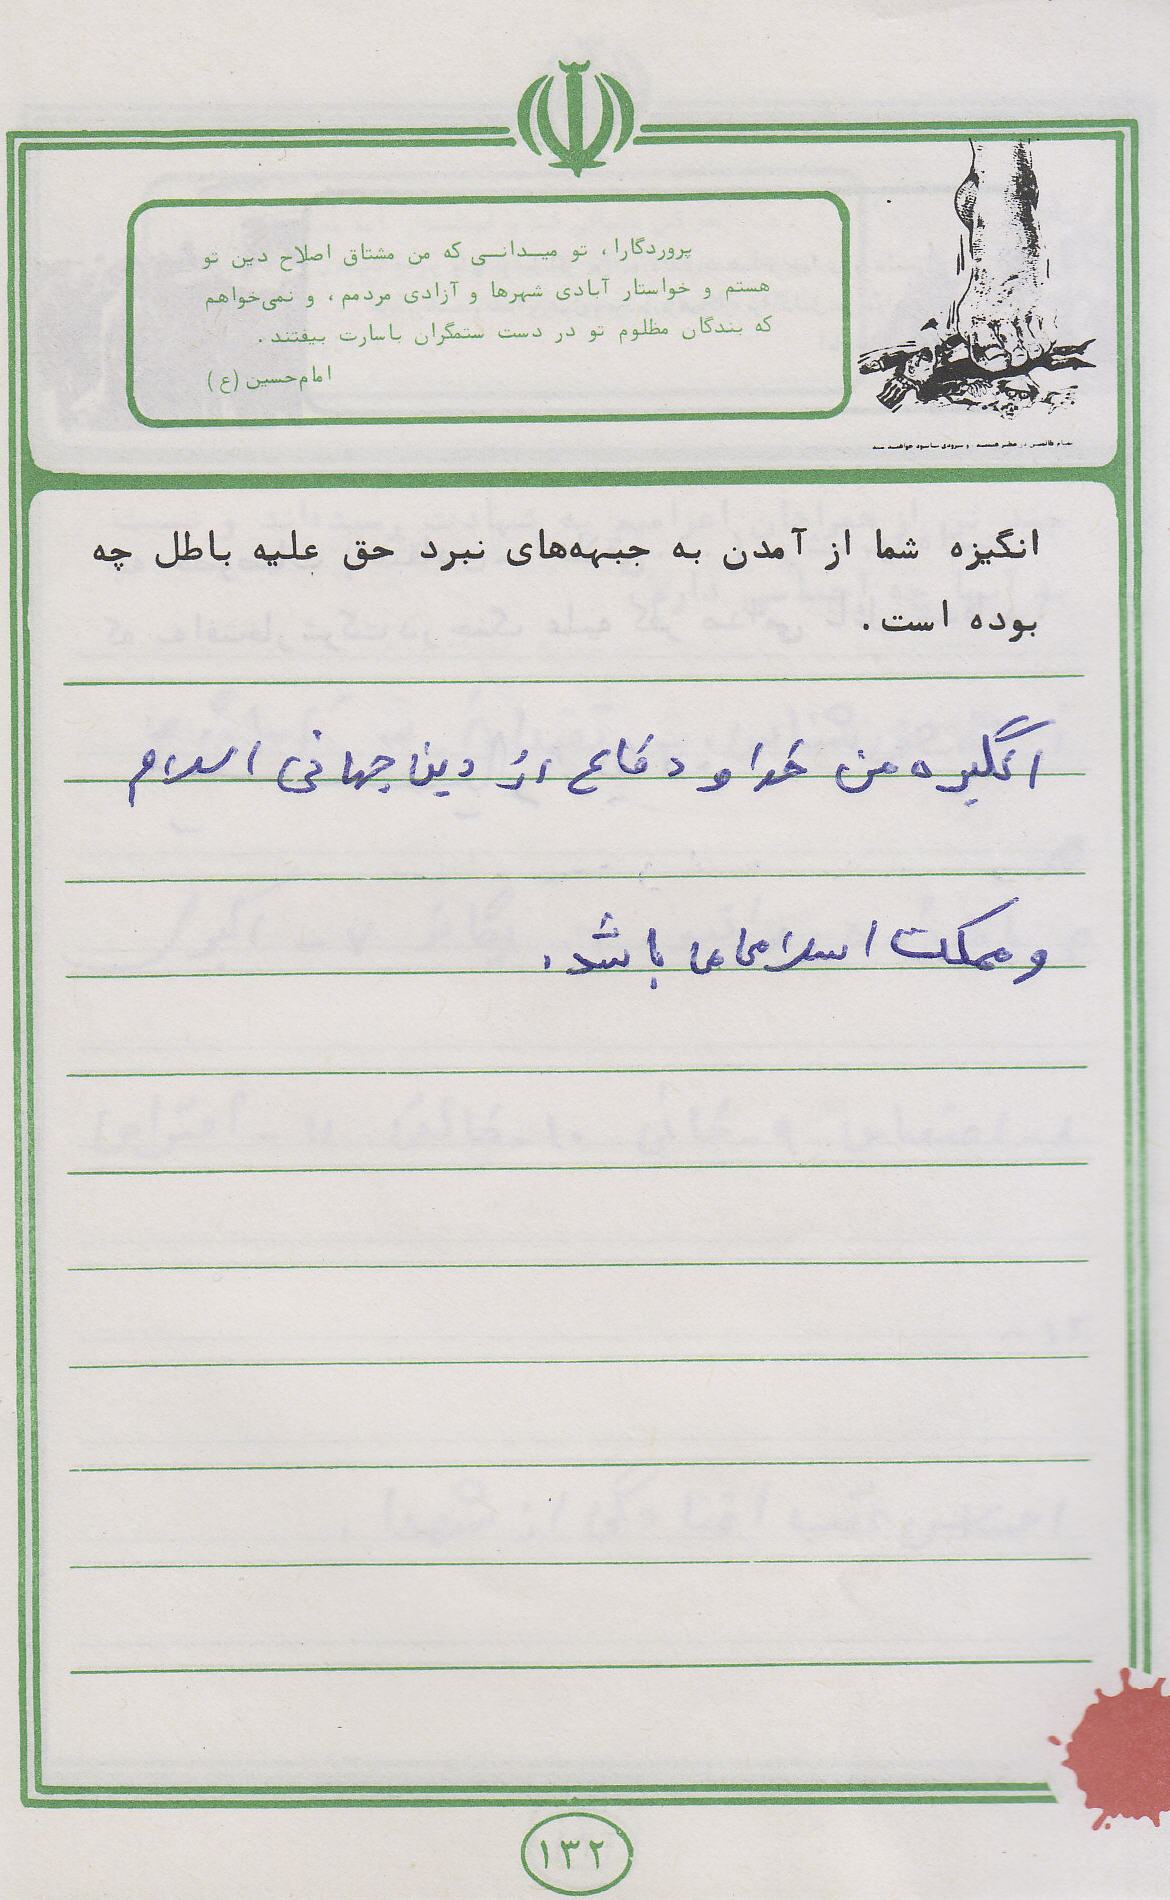 پروردگارا، تو میدانی که من مشتاق اصلاح دین تو
هستم و خواستار آبادی شهرها و آزادی مردمم، و نمی‌خواهم
که بندگان مظلوم تو در دست ستمگران باسارت بیفتند.
امام‌حسین (ع)
انگیزه شما از آمدن به جبهه‌های نبرد حق علیه باطل چه
بوده است.
انگیزه من خدا و دفاع از دین جهانی اسلام
و مملکت اسلامی می باشد.
۱۳۲